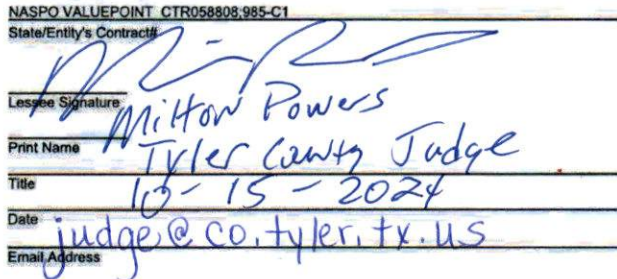 NASPO VALUEPOINT CTR058808;985-C1
State/Entity's Contract#
Lessee Signature
Milton Powers
Print Name
Tyler County Judge
Title
10-15-2024
Date
judge@co.tyler.tx.us
Email Address